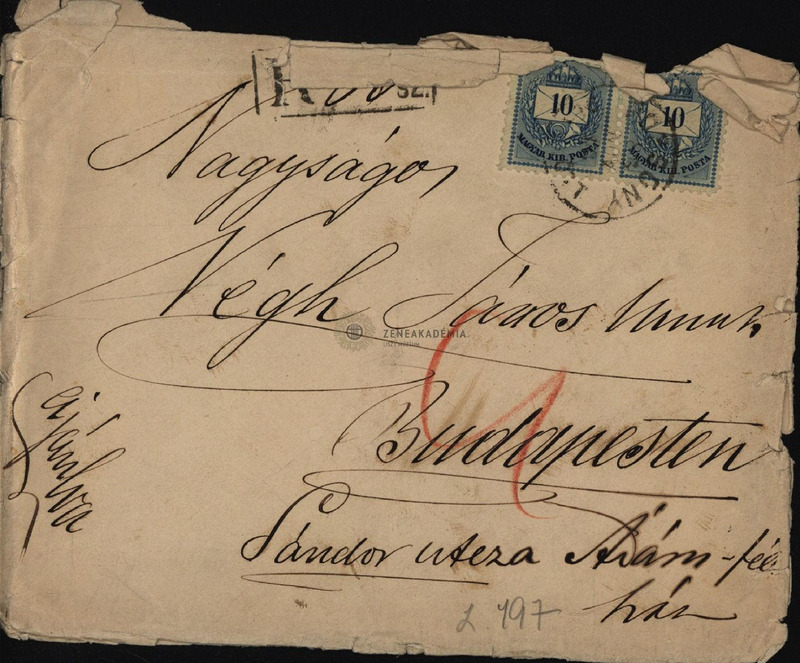 R SZ.
10 10
MAGYAR KIR. POSTA MAGYAR KIR. POSTA
Nagyságos
Végh János
ZENEAKADÉMIA
Budapesten
ajánlva
Sándor utcza Ádám-féle
ház
L. 497